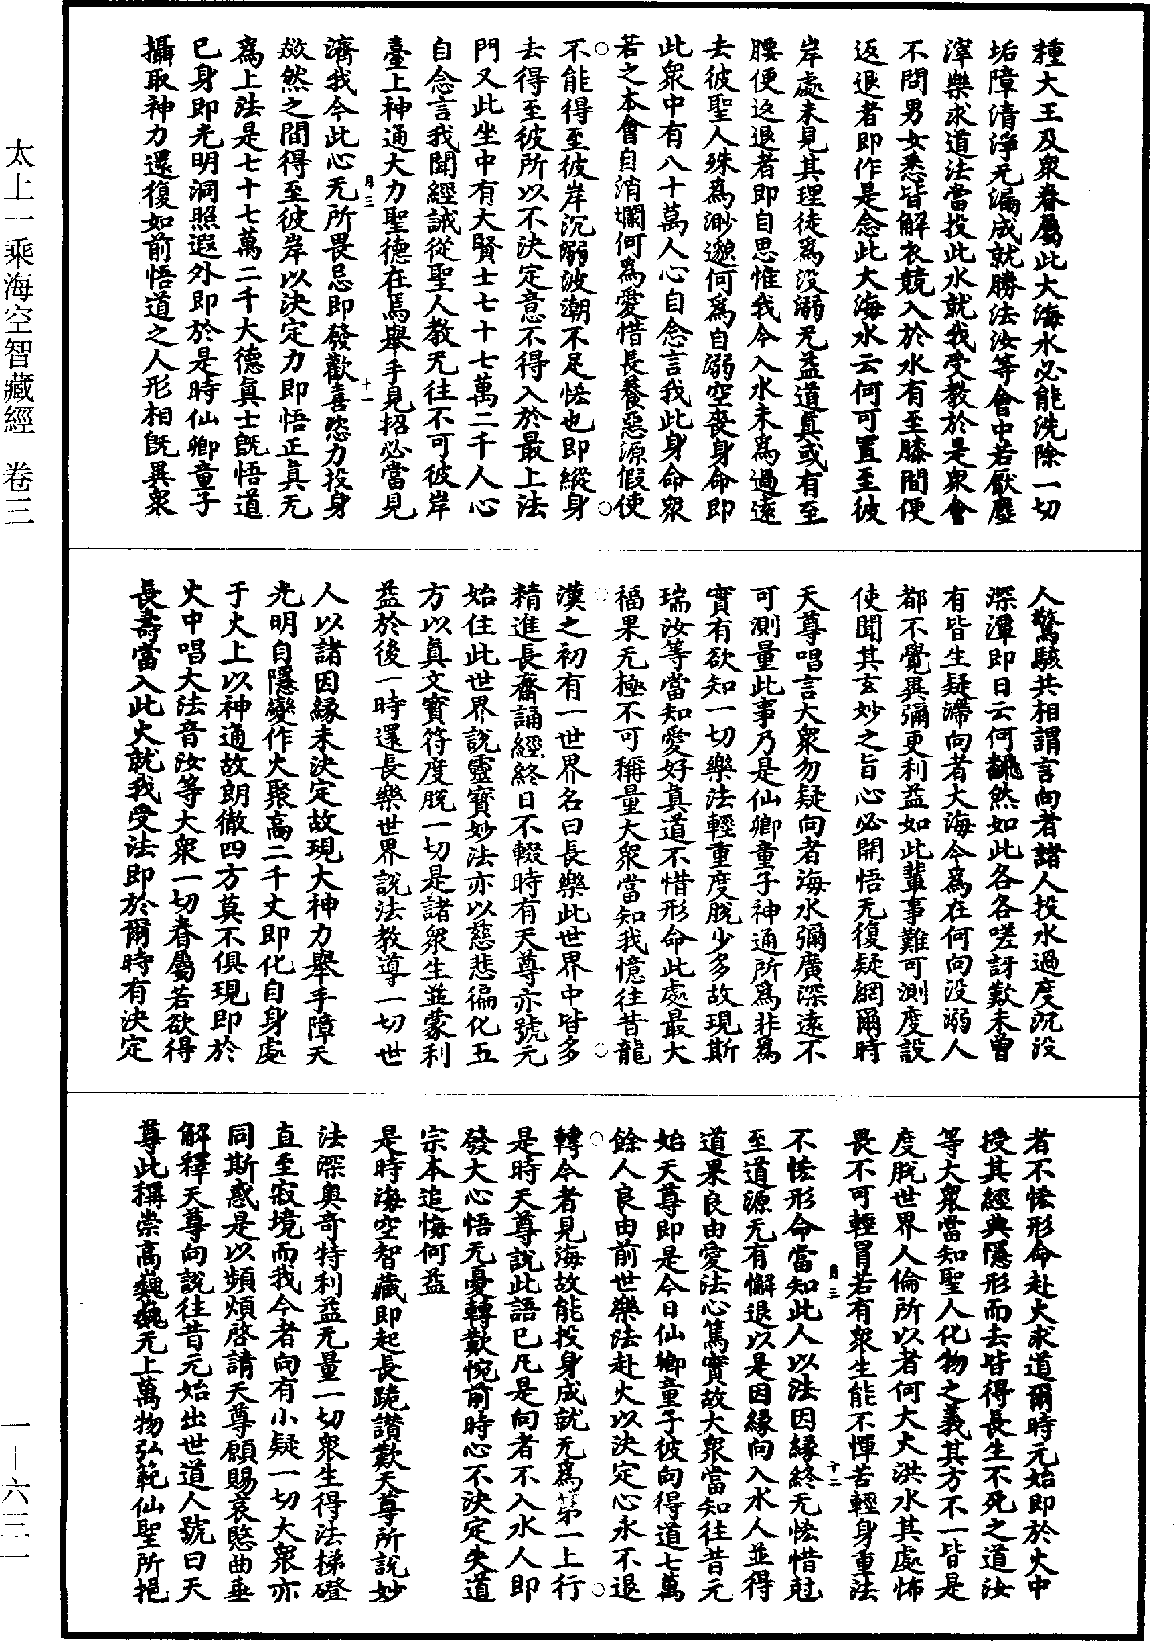 種大王及衆眷屬此大海水必能洗除一切
垢障清淨无漏成就勝法汝等會中若厭塵
滓樂求道法當投此水就我受教於是衆會
不問男女悉皆解衣競入於水有至膝間便
返退者即作是念此大海水云何可置至彼
岸處未見其理徒爲没溺无益道眞或有至
腰便返退者即自思惟我今入水未爲過遠
去彼聖人殊爲渺邈何爲自溺空喪身命即
此衆中有八十萬人心自念言我此身命衆
若之本會自消爛何爲愛惜長養惡源假使
不能得至彼岸沉溺波潮不足恡也即縱身
去得至彼所以不決定意不得入於最上法
門又此坐中有大賢士七十七萬二千人心
自念言我聞經誡從聖人教无往不可彼岸
臺上神通大力聖德在焉舉手見招必當見
濟我今此心无所畏忌即發歡喜恣力投身
歘然之間得至彼岸以決定力即悟正眞无
爲上法是七十七萬二千大德眞士旣悟道
已身即光明洞照遐外即於是時仙卿童子
攝取神力還復如前悟道之人形相旣異衆
人驚駭共相謂言向者諸人投水過度沉没
深潭即日云何然如此各各嗟訝歎未曾
有皆生疑滯向者大海今爲在何向没溺人
都不覺異彌更利益如此輩事難可測度設
使聞其玄妙之旨心必開悟无復疑網爾時
天尊唱言大衆勿疑向者海水彌廣深遠不
可測量此事乃是仙卿童子神通所爲非爲
實有欲知一切樂法輕重度脫少多故現斯
瑞汝等當知愛好真道不惜形命此處最大
福果无極不可稱量大衆當知我憶往昔龍
漢之初有一世界名曰長樂此世界中皆多
精進長齋誦經終日不輟時有天尊亦號元
始住此世界說靈寶妙法亦以慈悲徧化五
方以眞文寶符度脫一切是諸衆生並蒙利
益於後一時還長樂世界說法教導一切世
人以諸因緣未決定故現大神力舉手障天
光明自隱變作火聚高二千丈即化自身處
于火上以神通故朗徹四方莫不俱現即於
火中唱大法音汝等大衆一切眷屬若欲得
長壽當入此火就我受法即於爾時有決定
者不恡形命赴火求道爾時元始即於火中
授其經典隱形而去皆得長生不死之道汝
等大衆當知聖人化物之義其方不一皆是
度脫世界人倫所以者何大大洪水其處怖
畏不可輕冒若有衆生能不憚苦輕身重法
不恡形命當知此人以法因緣終无恡惜尅
至道源无有懈退以是因緣向入水人並得
道果良由愛法心篤實故大衆當知往昔元
始天尊即是今日仙卿童子彼向得道七萬
餘人良由前世樂法赴火以決定心永不退
轉今者見海故能投身成就无爲第一上行
是時天尊說此語已凡是向者不入水人即
發大心悟无憂轉歎惋前時心不決定失道
宗本追悔何益
是時海空智藏即起長跪讚歎天尊所說妙
法深奧奇特利益无量一切衆生得法梯磴
直至寂境而我今者向有小疑一切大衆亦
同斯惑是以頻煩啓請天尊願賜哀愍曲垂
解釋天尊向說往昔元始出世道人號曰天
尊此稱崇高巍巍无上萬物弘範仙聖所挹
月三
十一
月三
十二
太上一乘海空智藏經 卷三
一—六三一